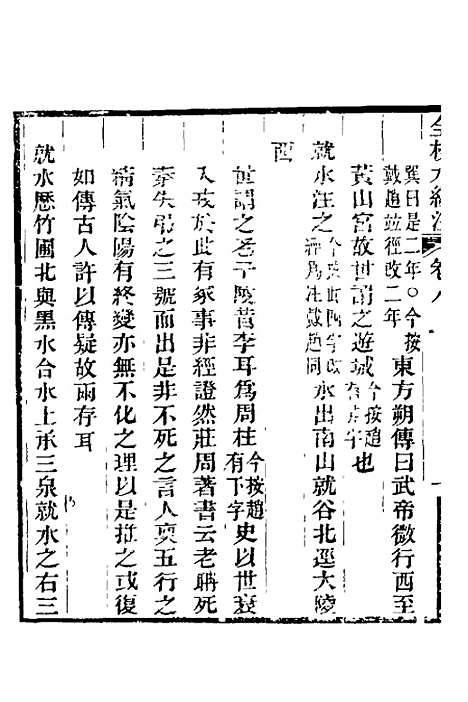 全校水經注 卷八
巽曰是二年〇今按
戴趙並徑改二年
東方朔傳曰武帝微行西至
黃山宮故世謂之遊城今按趙也
就水注之 水出南山就谷北逕大陵
西
世謂之老子陵昔李耳為周柱今按趙有下字史以世衰
入戎於此有冢事非經證然莊周著書云老聃死
秦失弔之三號而出是非不死之言人稟五行之
精氣陰陽有終變亦無不化之理以是推之或復
如傳古人許以傳疑故兩存耳
就水歷竹圃北與黑水合水上承三泉就水之右三